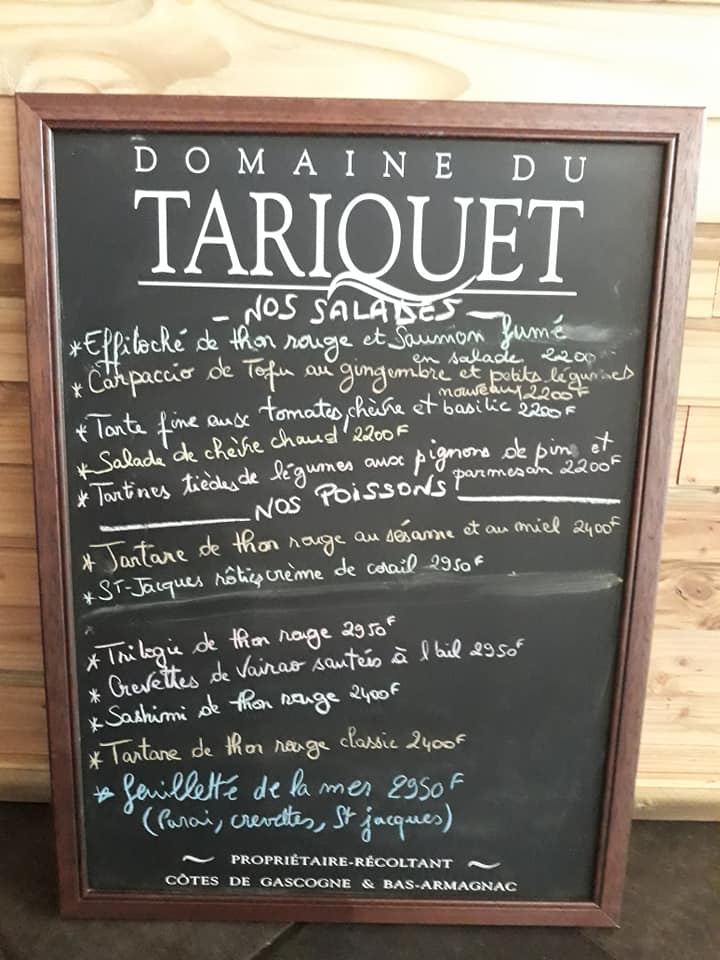 DOMAINE DU
TARIQUET
- NOS SALADES -
*Effiloché de thon rouge et Saumon fumé
en salade 2200
* Carpaccio de Tofu au gingembre et petits légumes
nouveaux 2200F
* Tarte fine aux tomates, chèvre et basilic 2200F
*Salade de chèvre chaud 2200F
* Tartines tièdes de légumes aux pignons de pin et
parmesan 2200F
NOS POISSONS
* Tartare de thon rouge au sésame et au miel 2400F
* ST-Jacques rôties crème de corail 2950F
* Trilogie de thon rouge 2950F
* Crevettes de Vairao sautées à l'ail 2950F
* Sashimi de thon rouge 2400F
* Tartare de thon rouge classic 2400F
* feuilletté de la mer 2950F
(Parai, crevettes, St jacques)
~ PROPRIÉTAIRE-RÉCOLTANT ~
CÔTES DE GASCOGNE & BAS-ARMAGNAC